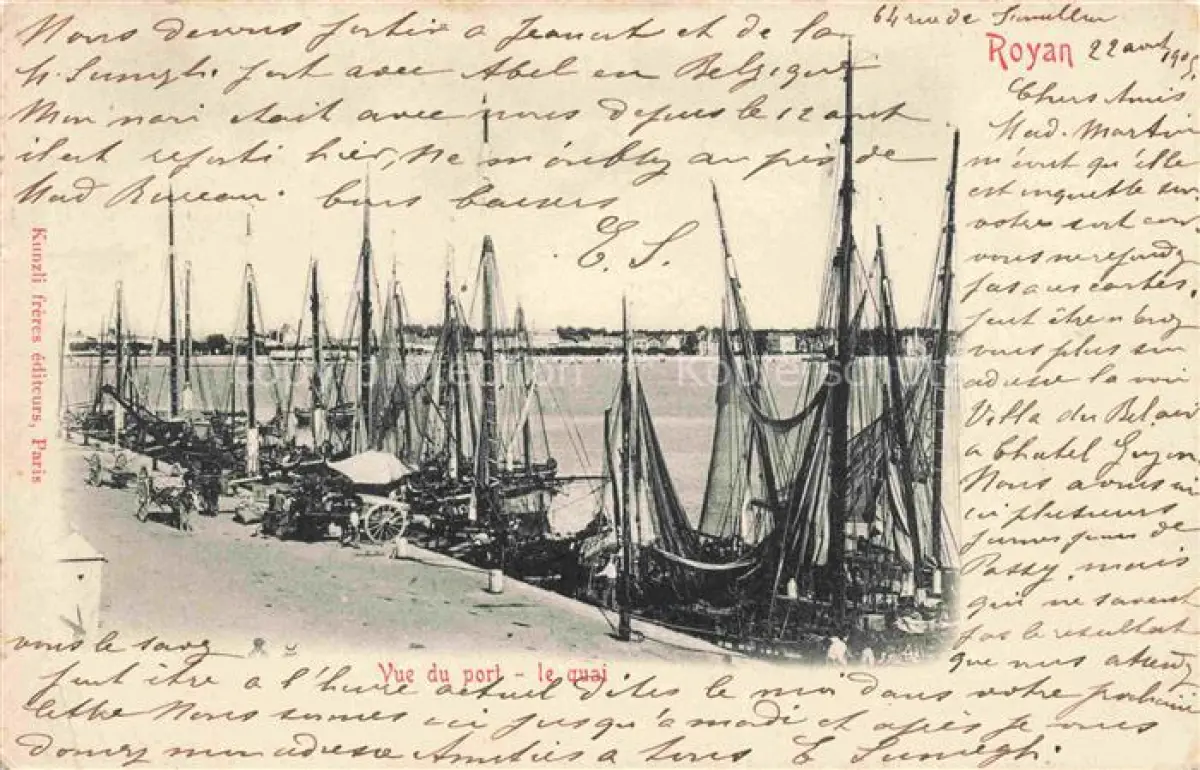 64 rue de
Royan 22 aout 1905
Chers Amis
Mad. Martin
m'écrit qu'elle
est inquiette sur
votre sort car
vous ne repondez
pas aux cartes.
peut être n'avez
vous plus son
adresse la voici
Villa du Belair
a Chatel Guyon
Nous avons vu
ici plusieurs
jeunes gens de
Passy, mais
qui ne savent
pas le resultat
que nous attendez
vous le savez
peut être a l'heure actuel dites le moi dans votre prochaine
lettre Nous sommes ici jusqu'a madi et après je vous
donnez mon adresse Amitiés a tous E
Nous devons partir a et de la
part avec Abel en Belgique
Mon mari etait avec nous depuis le 12 aout
il est reparti hier, Ne m'oubliez au près de
Mad bons baisers
E. S.
Kunzli frères éditeurs, Paris
Vue du port - le quai
Copyright protection Kopierschutz